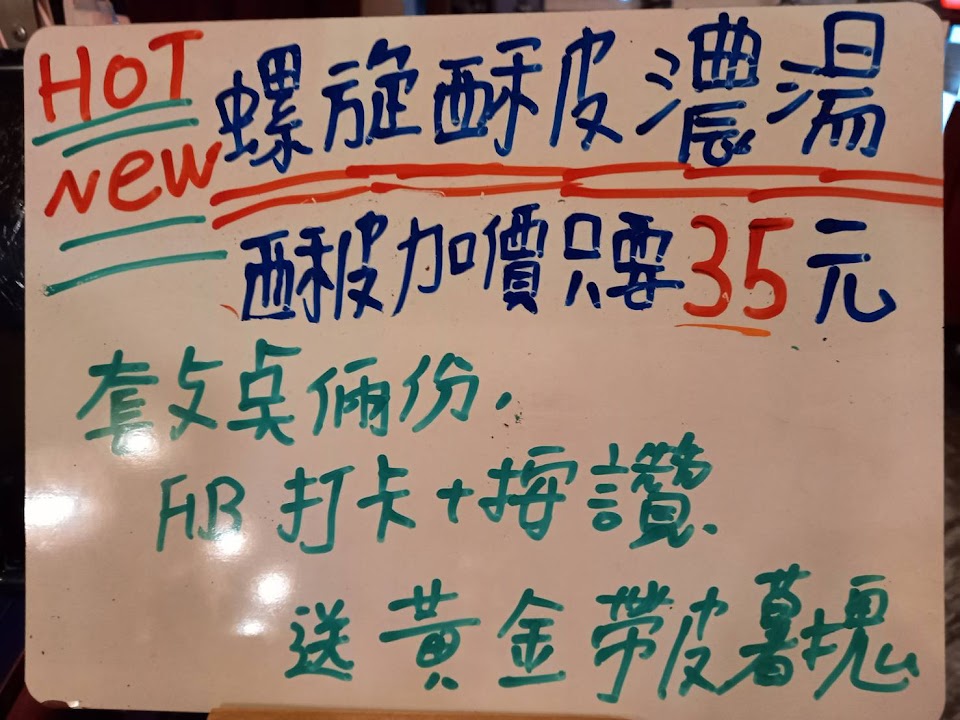 HOT 螺旋酥皮濃湯
New
酥皮加價只要35元
套歺奌倆份.
FB打卡+按讚.
送黃金帶皮薯塊